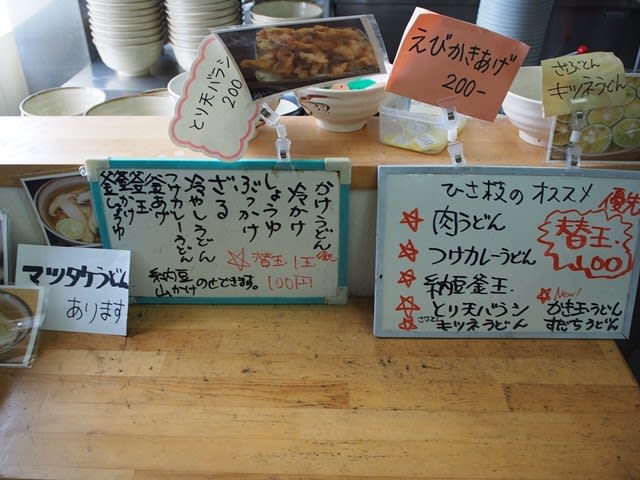 とり天バラシ
200
えびかきあげ
200-
さぶとん
キツネうどん
かけうどん
冷かけ
しょうゆ
ぶっかけ
ざる
冷やしうどん
つけカレーうどん
釜あげ
釜玉
釜かけ
釜しょうゆ
☆替玉1玉
100円
納内豆
山かけのせできます。
マツタケうどん
あります
ひさ枝のオススメ
☆肉うどん
☆つけカレーうどん
☆納豆釜玉.
☆とり天バラシ
☆さぶとんキツネうどん
替玉.
100
☆New!
かき玉うどん
すだちうどん